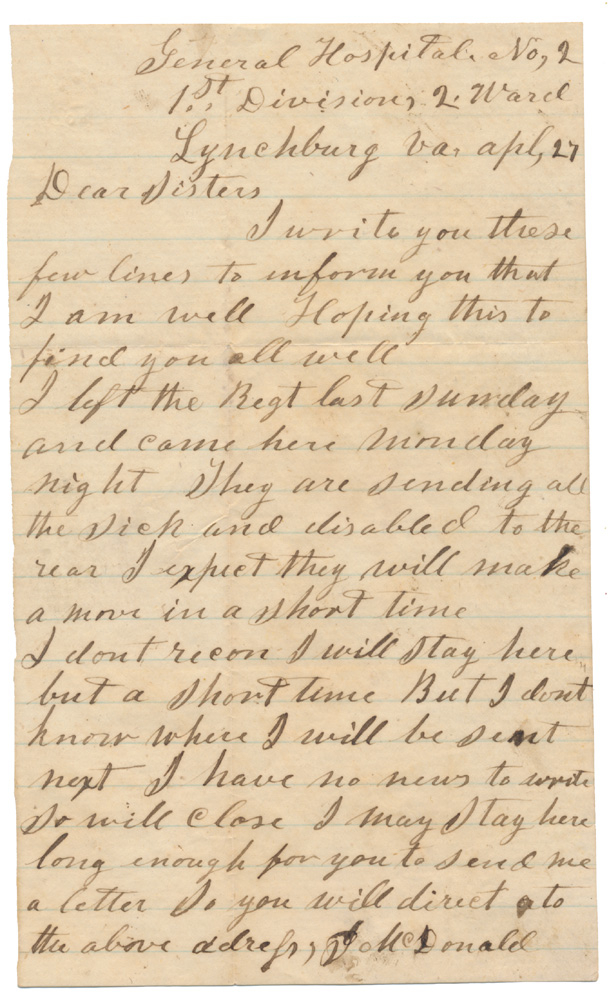 General Hospital. No, 2
1st Division, 2. Ward
Lynchburg Va, apl, 27
Dear Sisters
I write you these
few lines to inform you that
I am well Hoping this to
find you all well
I left the Regt last Sunday
and came here Monday
night They are sending all
the sick and disabled to the
rear I expect they will make
a move in a short time
I dont recon I will stay here
but a short time But I dont
know where I will be sent
next I have no news to write
So will close I may stay here
long enough for you to send me
a letter So you will direct to
the above adress, McDonald